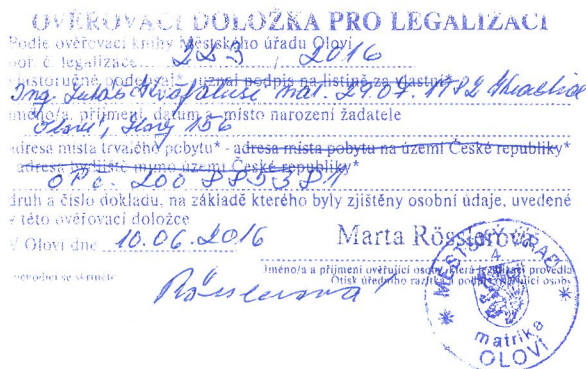 OVĚŘOVACÍ DOLOŽKA PRO LEGALIZACI
Podle ověřovací knihy Městského úřadu Oloví
poř. č. legalizace 223 / 2016
vlastoručně podepsal - uznal podpis na listině za vlastní*
Ing. nar. 29.07.1982
jméno/a, příjmení, datum a místo narození žadatele
Oloví, Hory 156
adresa místa trvalého pobytu* - adresa místa pobytu na území České republiky*
- adresa bydliště mimo území České republiky*
OP č. 200 885381
druh a číslo dokladu, na základě kterého byly zjištěny osobní údaje, uvedené
v této ověřovací doložce
V Oloví dne 10.06.2016 Marta Rösslerová
Jméno/a a příjmení ověřující osoby, která legalizaci provedla
Otisk úředního razítka a podpis ověřující osoby
Rösslerová
MĚSTSKÝ ÚŘAD
4
matrika
OLOVÍ